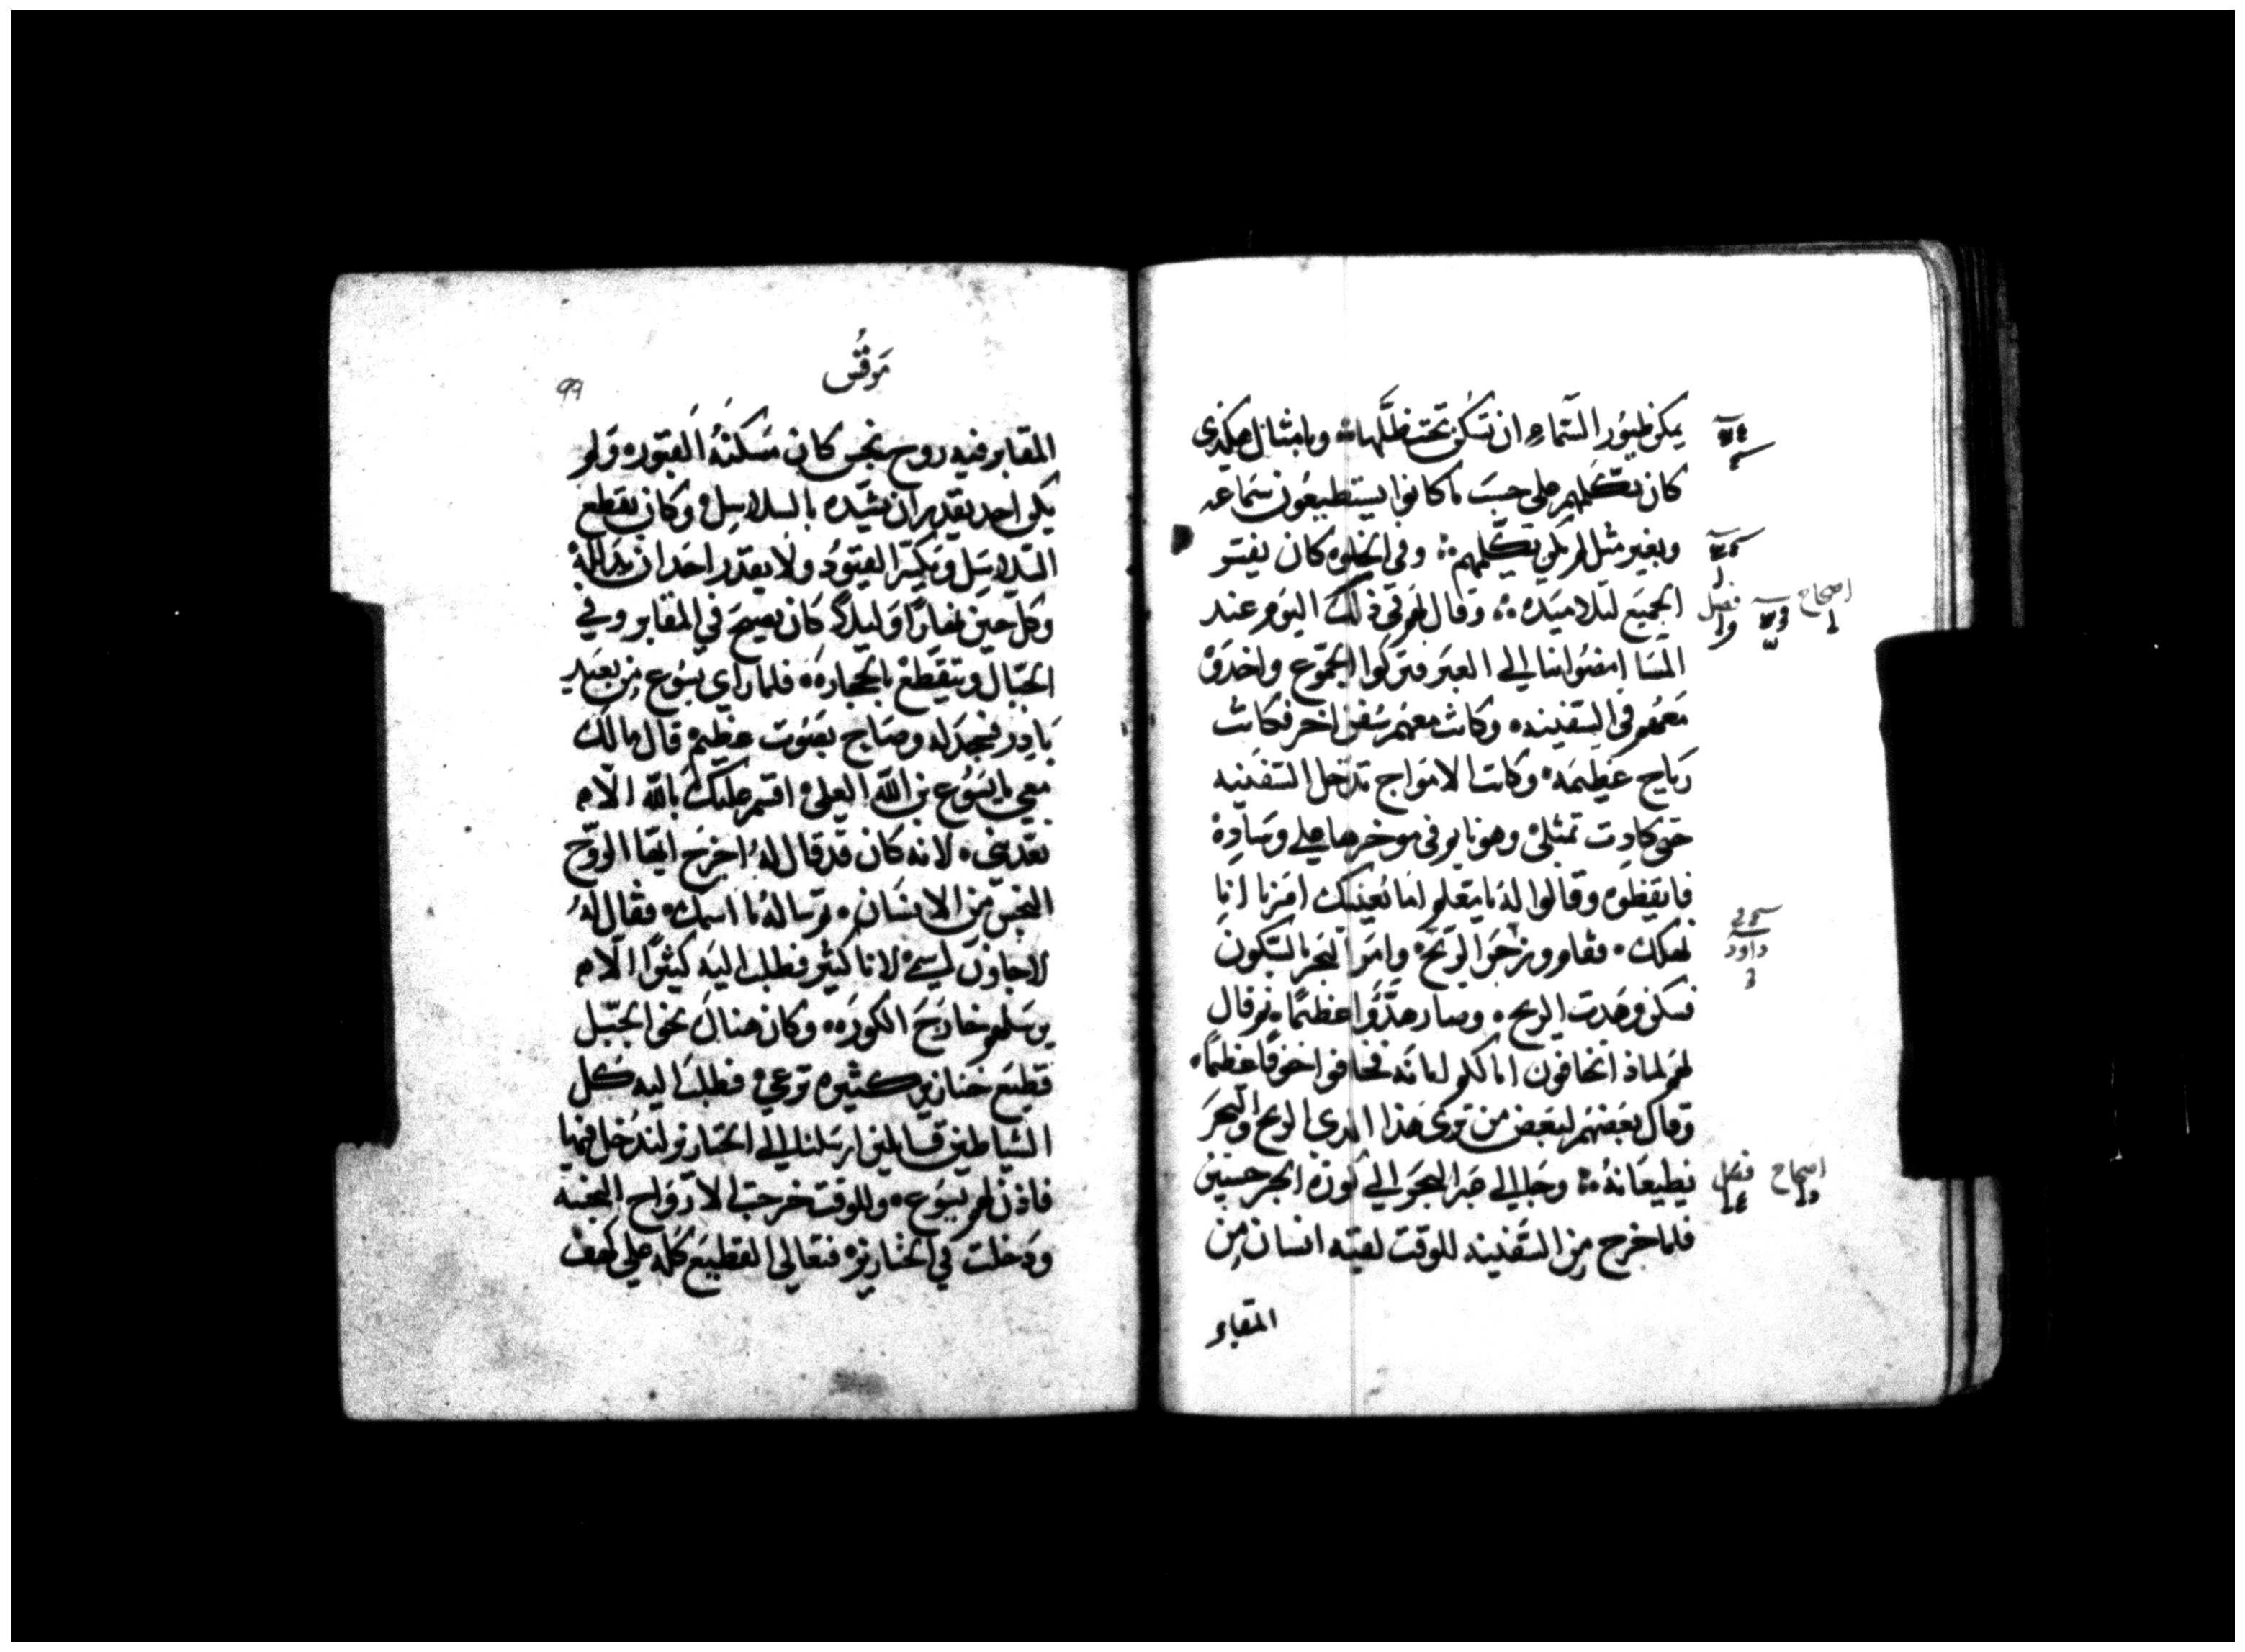 يمكن طيور السماء ان تسكن تحت ظلها وبامثال هكذي
كان يكلمهم علي حسب ما كانوا يستطيعون سماعه
وبغير مثل لم يكن يكلمهم وفي الخلوه كان يفسر
الجميع لتلاميذه وقال لهم في ذلك اليوم عند
المسا امضوا بنا الي العبر فتركوا الجموع واخذوه
معهم في السفينه وكانت معهم سفن اخر فكانت
رياح عظيمه وكانت الامواج تدخل السفينه
حتي كادت تمتلي وهو نايم في موخرها علي وساده
فايقظوه وقالوا له يا معلم اما يعنيك امرنا اننا
نهلك فقام وزجر الريح وامر البحر بالسكون
فسكن وهدت الريح وصار هدوا عظيما ثم قال
لهم لماذا تخافون اما لكم امانه فخافوا خوفا عظيما
وقال بعضهم لبعض من تري هذا الذي الريح والبحر
يطيعانه وجا الي عبر البحر الي كورة الجرجسيين
فلما خرج من السفينه للوقت لقيه انسان من
المقابر
اصحاح
فصل
داود
اصحاح
فصل
مرقس
99
المقابر فيه روح نجس كان مسكنه القبور ولم
يكن احد يقدر ان يشده بالسلاسل وكان يقطع
السلاسل ويكسر القيود ولا يقدر احد ان يذلله
وكل حين نهارا وليلا كان يصيح في المقابر وفي
الجبال ويتقطع بالحجاره فلما راي يسوع من بعيد
بادر فسجد له وصاح بصوت عظيم قال ما لك
معي يا يسوع بن الله العلي اقسم عليك بالله الا
تعذبني لانه كان قد قال له اخرج ايها الروح
النجس من الانسان ثم ساله ما اسمك فقال له
لاجاون اسمي لانا كثير فطلب اليه كثيرا الا
يرسلهم خارج الكوره وكان هناك نحو الجبل
قطيع خنازير كثيره ترعي فطلب اليه كل
الشياطين قايلين ارسلنا الي الخنازير لندخل فيها
فاذن لهم يسوع وللوقت خرجت الارواح النجسه
ودخلت في الخنازير فتعالي القطيع كله علي كهف